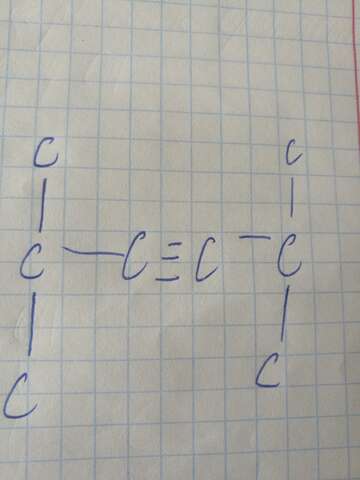 C C
C — C ≡ C — C
C C